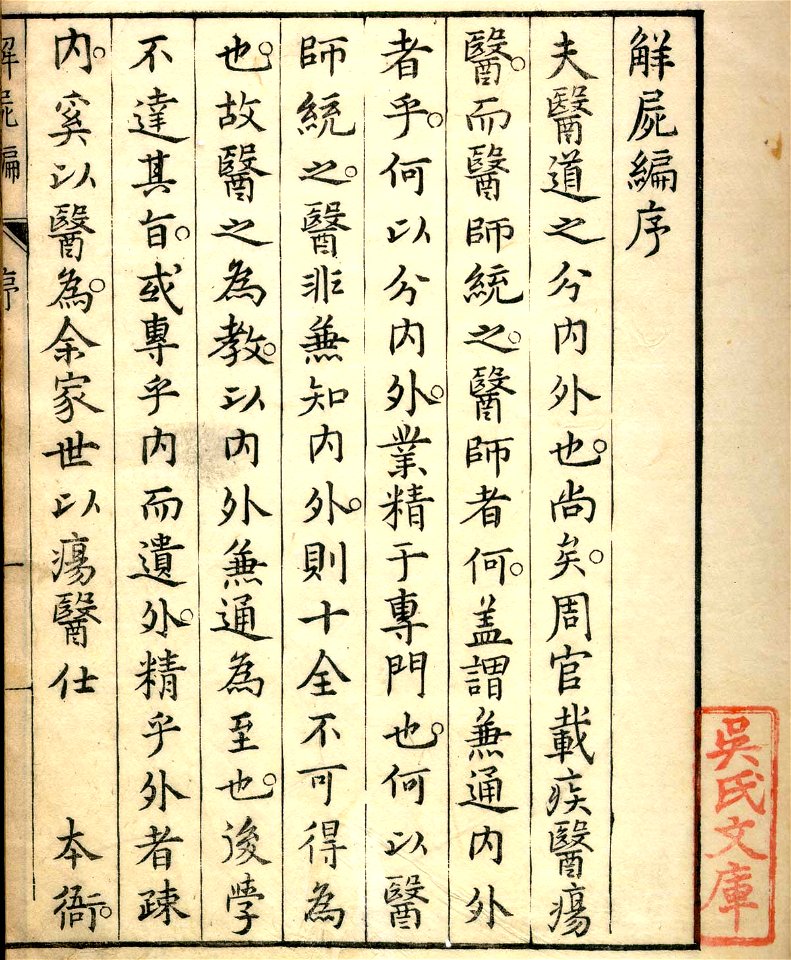 觧屍編序
夫醫道之分内外也。尚矣。周官載疾醫瘍
醫。而醫師統之。醫師者何。盖謂兼通内外
者乎。何以分内外。業精于專門也。何以醫
師統之。醫非兼知内外。則十全不可得為
也。故醫之為教。以内外兼通為至也。後學
不達其旨。或專乎内而遺外。精乎外者疎
内。奚以醫為。余家世以瘍醫仕　本衙。
解屍編　序
吳氏文庫